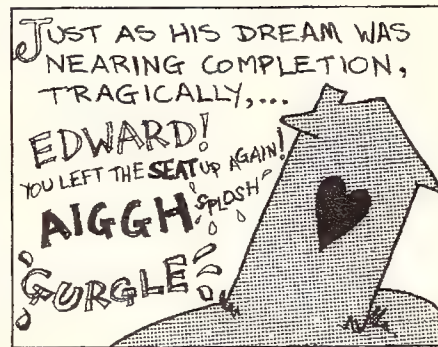 JUST AS HIS DREAM WAS
NEARING COMPLETION,
TRAGICALLY,...
EDWARD!
YOU LEFT THE SEAT UP AGAIN!
AIGGH
SPLOSH
GURGLE